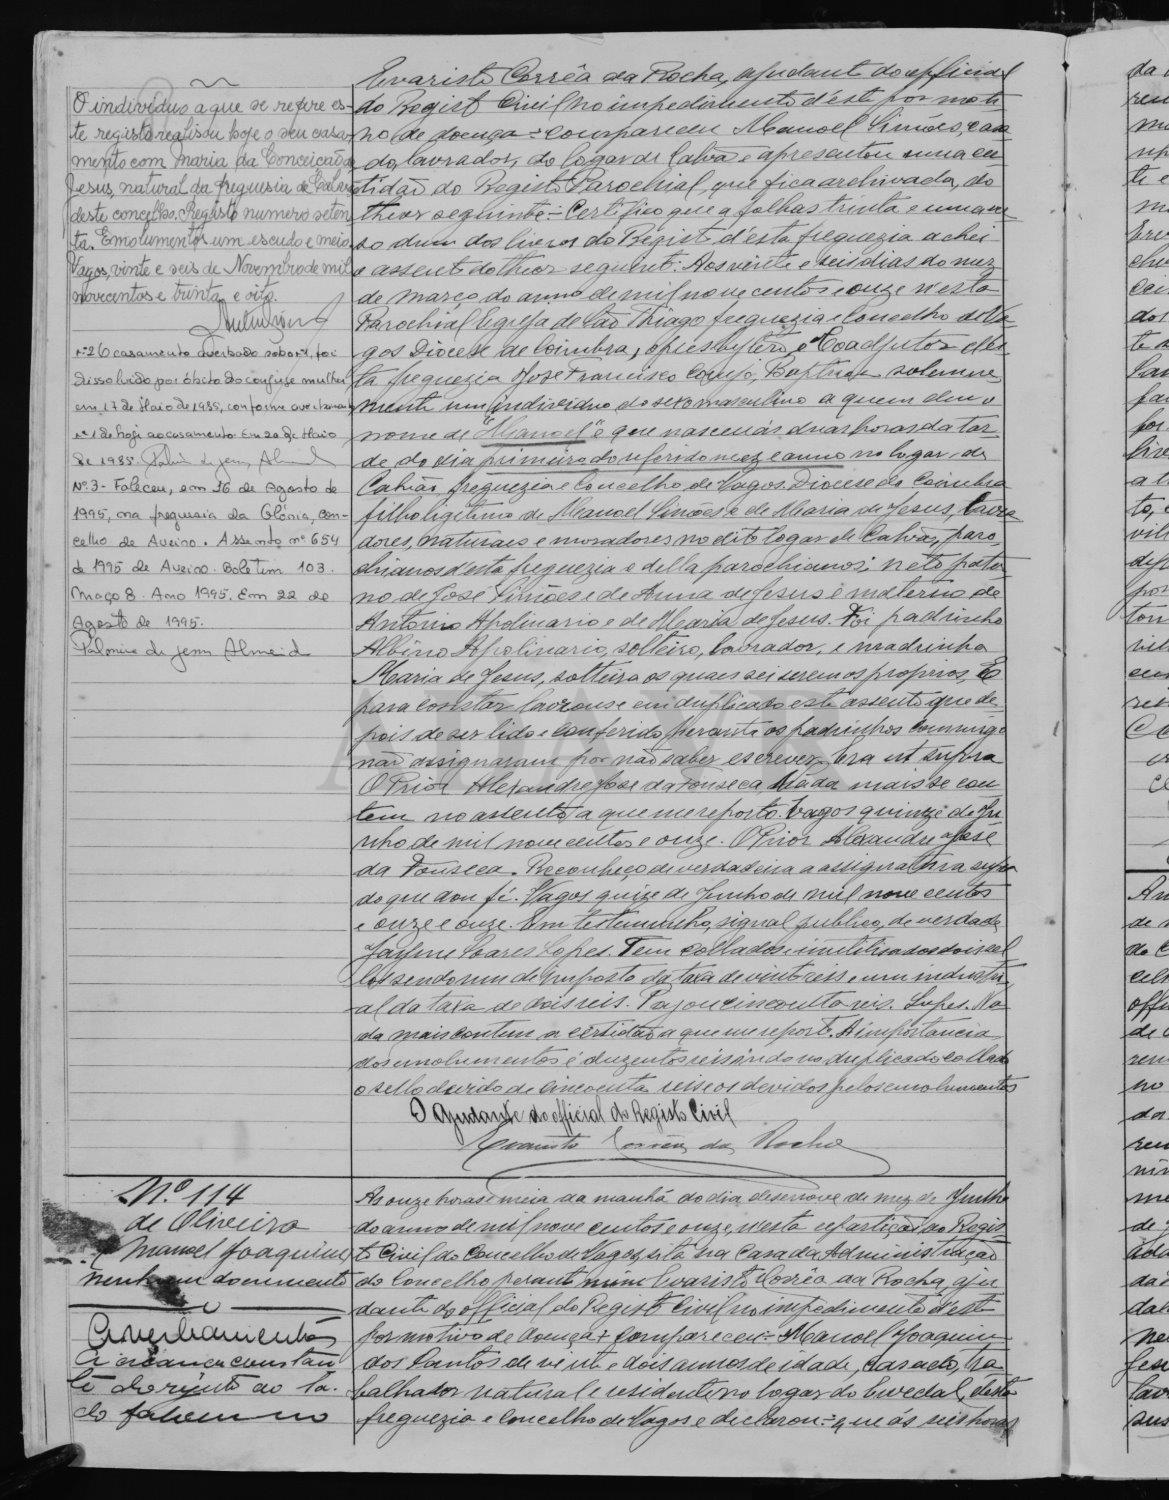 O individuo a que se refere es-
te registo realisou hoje o seu casa-
mento com Maria da Conceição de
Jesus, natural da freguesia de Calvão
deste concelho. Registo numero seten-
ta. Emolumentos um escudo e meio
Vagos, vinte e seis de Novembro de mil
novecentos e trinta e oito.
nº 2 O casamento averbado sob o nº 1, foi
dissolvido por óbito do conjuge mulher
em 17 de Maio de 1985, conforme averbamento
nº 1 de hoje ao casamento. Em 20 de Maio
de 1985.
Nº 3 - Faleceu, em 16 de Agosto de
1995, na freguesia da Glória, con-
celho de Aveiro. Assento nº 654
de 1995 de Aveiro. Boletim 103.
Maço 8. Ano 1995. Em 22 de
Agosto de 1995.
Evaristo Corrêa da Rocha, ajudante do official
do Registo Civil no impedimento d'este por moti-
vo de doença = compareceu Manoel Simões, casa
do, lavrador, do logar de Calvão e apresentou uma cer
tidão do Registo Parochial, que fica archivada, do
theor seguinte = Certifico que a folhas trinta e uma ver
so dum dos livros do Registo d'esta freguezia achei
o assento do theor seguinte: Aos vinte e seis dias do mez
de março do anno de mil nove centos e onze n'esta
Parochial Egreja de São Thiago freguezia e Concelho de Va-
gos Diocese de Coimbra, o presbytero e Coadjutor d'es-
ta freguezia José Francisco Corujo, Baptisou solemne
mente um individuo do sexo masculino a quem deu o
nome de "Manoel" e que nasceu ás duas horas da tar-
de do dia primeiro do referido mez e anno no logar de
Calvão freguezia e Concelho de Vagos Diocese de Coimbra
filho ligitimo de Manoel Simões e de Maria de Jesus, lavra
dores, naturaes e moradores no dito logar de Calvão, paro
chianos d'esta freguezia e della parochianos; neto pater
no de José Simões e de Anna de Jesus e materno de
Antonio Apolinario e de Maria de Jesus. Foi padrinho
Albino Apolinario, solteiro, lavrador, e madrinha
Maria de Jesus, solteira os quaes sei serem os proprios. E
para constar lavrou-se em duplicado este assento que de
pois de ser lido e conferido perante os padrinhos commigo
não assignaram por não saber escrever. Era ut supra
O Prior Alexandre José da Fonseca. Nada mais se con
tem no assento a que me reporto. Vagos quinze de Ju
nho de mil nove centos e onze. O Prior Alexandre José
da Fonseca. Reconheço de verdadeira a assignatura supra
do que dou fé. Vagos quize de Junho de mil nove centos
e onze e onze. Em testemunho, signal publico, de verdade
Jayme Soares Lopes. Tem collados e inutilisados dois sel
los sendo um de imposto da taxa de vinte reis e um industri
al da taxa de dois reis. Pagou cincoenta reis. Lopes. Na
da mais contem a certidão a que me reporto. A importancia
dos emolumentos é duzentos reis indo no duplicado collado
o sello devido de cincoenta reis e os devidos pelos emolumentos
O Ajudante do official do Registo Civil
Evaristo Corrêa da Rocha
N.º 114
de Oliveira
Manoel Joaquim
nenhum documento
Averbamentos
A criança constan
te do rejisto ao la-
do faleceu no
As onze horas e meia da manhã do dia desenove de mez de Junho
do anno de mil nove centos e onze, n'esta repartição do Regis
to Civil do Concelho de Vagos, sita na Casa da Administração
do Concelho perante mim Evaristo Corrêa da Rocha, aju
dante do official do Registo Civil no impedimento d'este
por motivo de doença + compareceu = Manoel Joaquim
dos Santos de vinte e dois annos de idade, casado, tra
balhador natural e residente no logar do Covedal, d'esta
freguezia e Concelho de Vagos e declarou = que ás seis horas